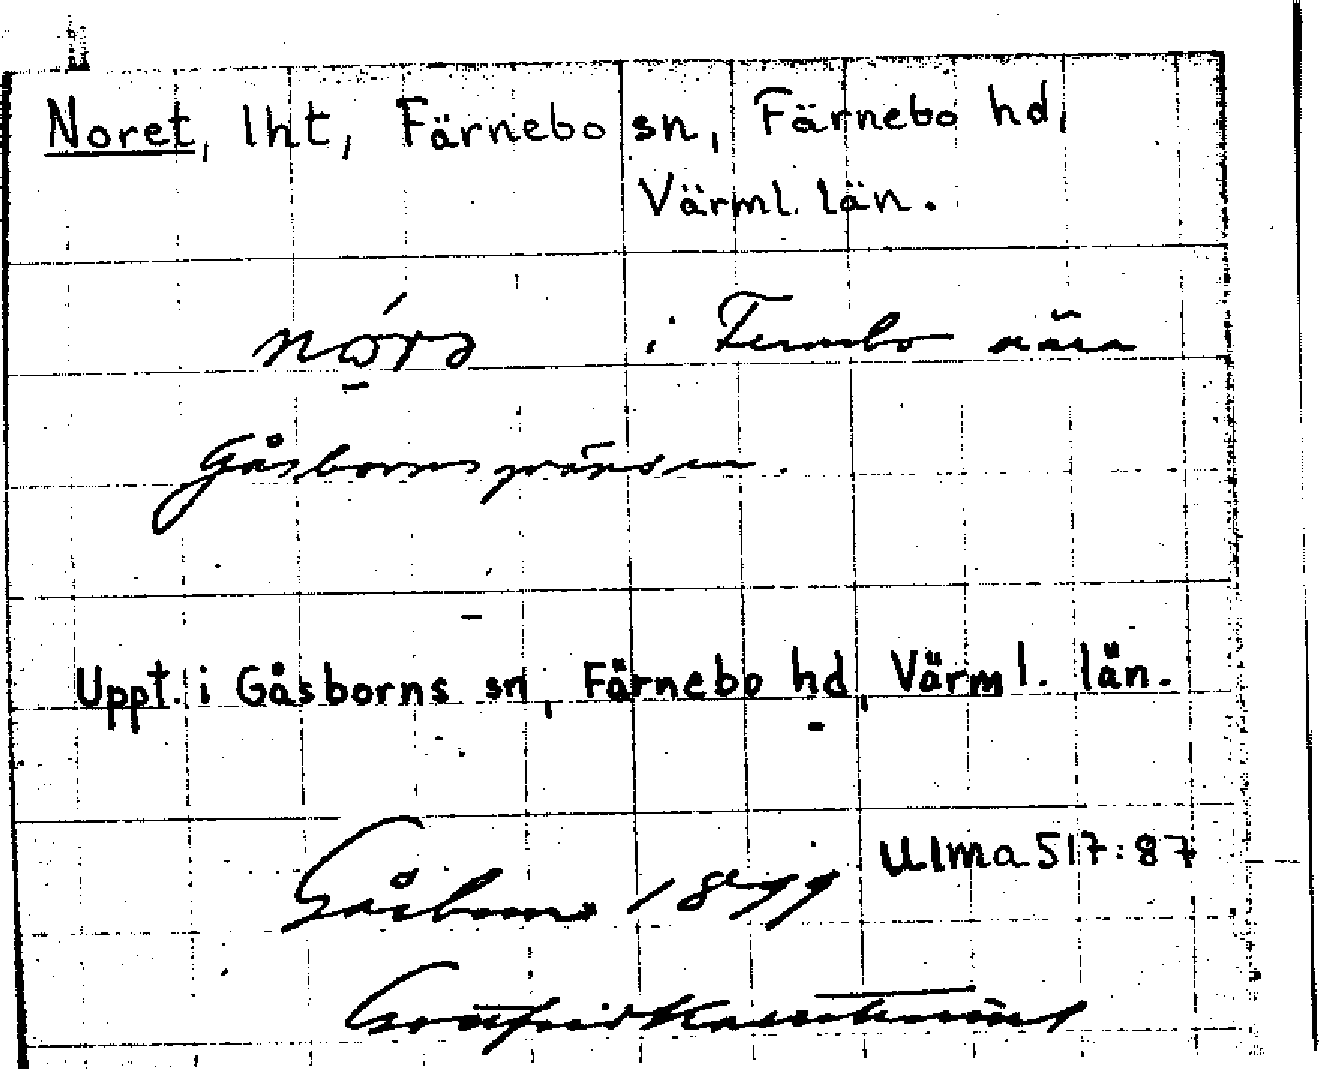 Noret, lht, Färnebo sn, Färnebo hd,
Värml. län.
i Fernebo nära
Gåsbornsgränsen.
Uppt. i Gåsborns sn, Färnebo hd, Värml. län.
Ulma 517:87
Gåsborn 1899
Gottfrid Kallstenius